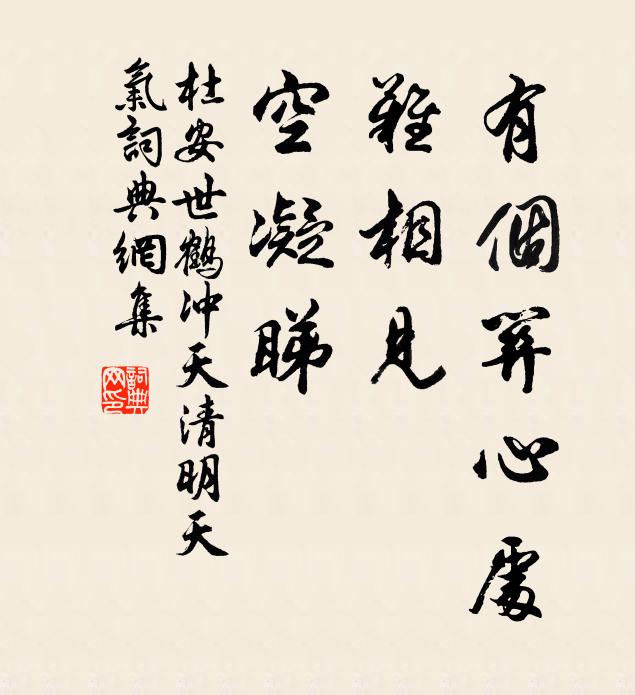 有個關心處
難相見
空凝睇
杜安世鶴冲天清明天
氣詞典網集
詞典
网印